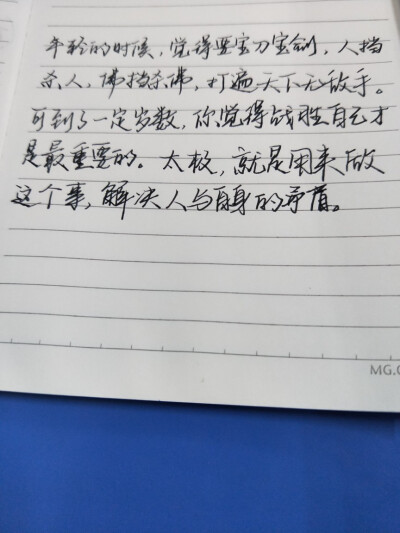 年轻的时候，觉得要宝刀宝剑，人挡
杀人，佛挡杀佛，打遍天下无敌手。
可到了一定岁数，你觉得战胜自己才
是最重要的。太极，就是用来做
这个事，解决人与自身的矛盾。
MG.